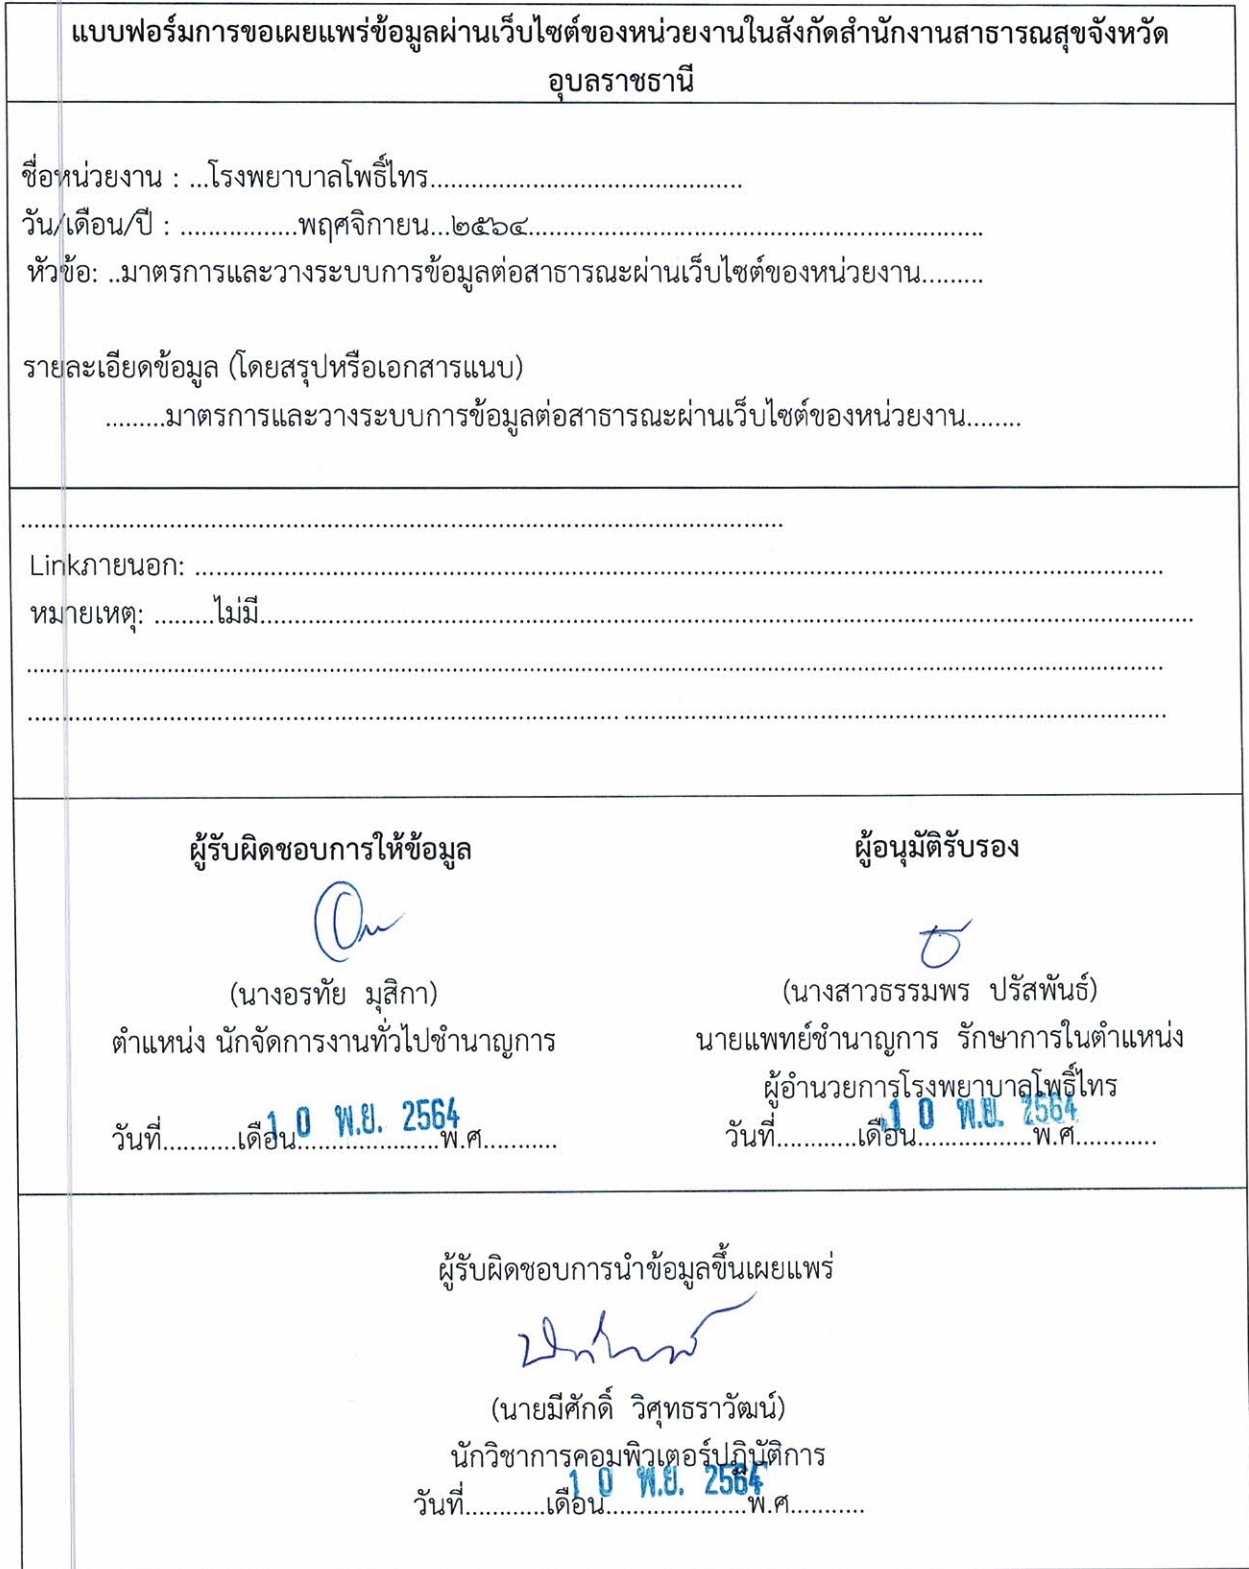 แบบฟอร์มการขอเผยแพร่ข้อมูลผ่านเว็บไซต์ของหน่วยงานในสังกัดสำนักงานสาธารณสุขจังหวัด
อุบลราชธานี
ชื่อหน่วยงาน : ...โรงพยาบาลโพธิ์ไทร...........................................
วัน/เดือน/ปี : .................พฤศจิกายน...๒๕๖๔...............................................................
หัวข้อ: ..มาตรการและวางระบบการข้อมูลต่อสาธารณะผ่านเว็บไซต์ของหน่วยงาน.........
รายละเอียดข้อมูล (โดยสรุปหรือเอกสารแนบ)
.........มาตรการและวางระบบการข้อมูลต่อสาธารณะผ่านเว็บไซต์ของหน่วยงาน........
Linkภายนอก: ........................................................................................................
หมายเหตุ: .........ไม่มี........................................................................................................
ผู้รับผิดชอบการให้ข้อมูล
(นางอรทัย มุสิกา)
ตำแหน่ง นักจัดการงานทั่วไปชำนาญการ
วันที่...........เดือน.....................พ.ศ...........
10 พ.ย. 2564
ผู้อนุมัติรับรอง
(นางสาวธรรมพร ปรัสพันธ์)
นายแพทย์ชำนาญการ รักษาการในตำแหน่ง
ผู้อำนวยการโรงพยาบาลโพธิ์ไทร
วันที่............เดือน.................พ.ศ............
10 พ.ย. 2564
ผู้รับผิดชอบการนำข้อมูลขึ้นเผยแพร่
(นายมีศักดิ์ วิศุทธราวัฒน์)
นักวิชาการคอมพิวเตอร์ปฏิบัติการ
วันที่............เดือน.....................พ.ศ...........
10 พ.ย. 2564